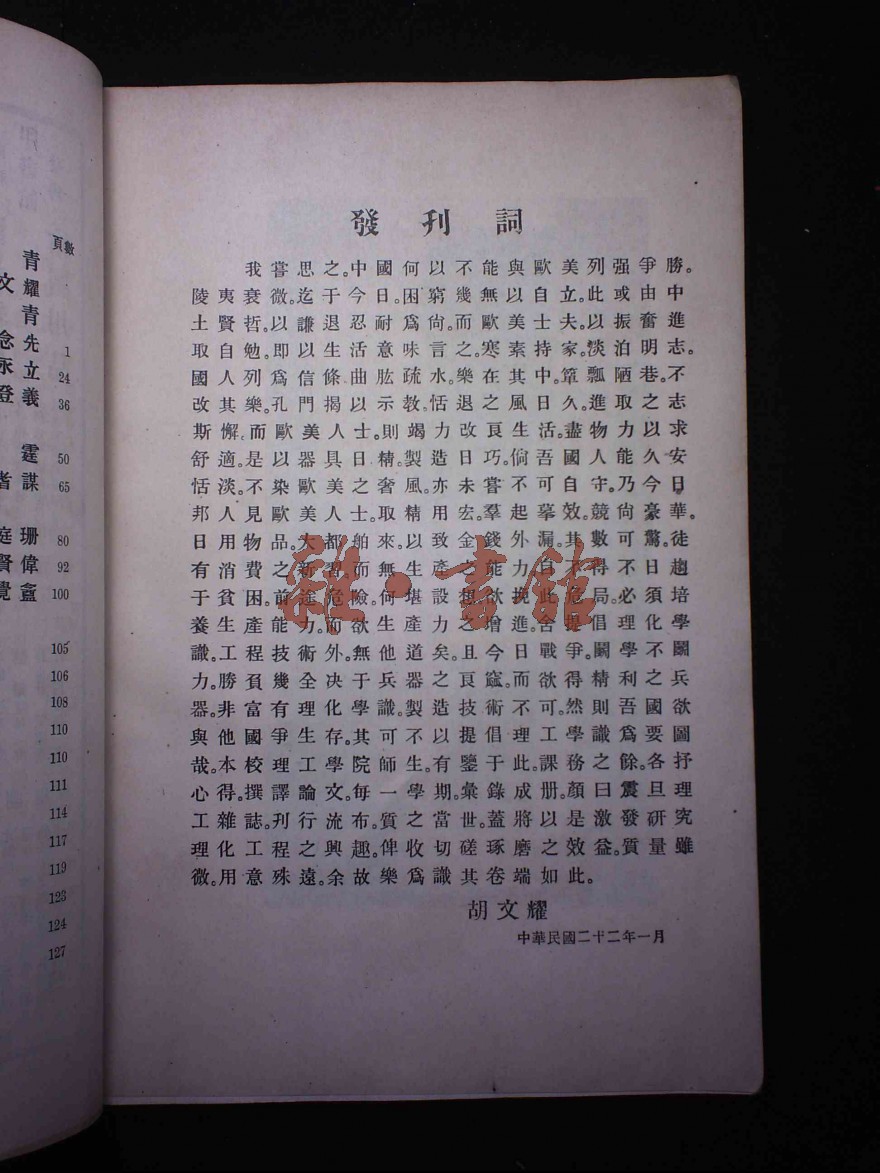 發刊詞
我嘗思之。中國何以不能與歐美列强爭勝。
陵夷衰微。迄于今日。困窮幾無以自立。此或由中
土賢哲。以謙退忍耐爲尙。而歐美士夫。以振奮進
取自勉。卽以生活意味言之。寒素持家。淡泊明志。
國人列爲信條。曲肱疏水。樂在其中。簞瓢陋巷。不
改其樂。孔門揭以示敎。恬退之風日久。進取之志
斯懈。而歐美人士。則竭力改良生活。盡物力以求
舒適。是以器具日精。製造日巧。倘吾國人能久安
恬淡。不染歐美之奢風。亦未嘗不可自守。乃今日
邦人見歐美人士。取精用宏。羣起摹效。競尙豪華。
日用物品。大都舶來。以致金錢外漏。其數可驚。徒
有消費之新習。而無生產之能力。自不得不日趨
于貧困。前途危險。何堪設想。欲挽此危局。必須培
養生產能力。而欲生產力之增進。舍提倡理化學
識。工程技術外。無他道矣。且今日戰爭。鬭學不鬭
力。勝負幾全决于兵器之良窳。而欲得精利之兵
器。非富有理化學識。製造技術不可。然則吾國欲
與他國爭生存。其可不以提倡理工學識爲要圖
哉。本校理工學院師生。有鑒于此。課務之餘。各抒
心得。撰譯論文。每一學期。彙錄成册。顏曰震旦理
工雜誌。刊行流布。質之當世。蓋將以是激發研究
理化工程之興趣。俾收切磋琢磨之效益。質量雖
微。用意殊遠。余故樂爲識其卷端如此。
胡文耀
中華民國二十二年一月
頁數
青
文耀
青
念先 1
立 24
澄義 36
霆 50
者謀 65
庭珊 80
賢偉 92
覺盦 100
105
106
108
110
110
111
114
117
119
123
124
127
雜·書館